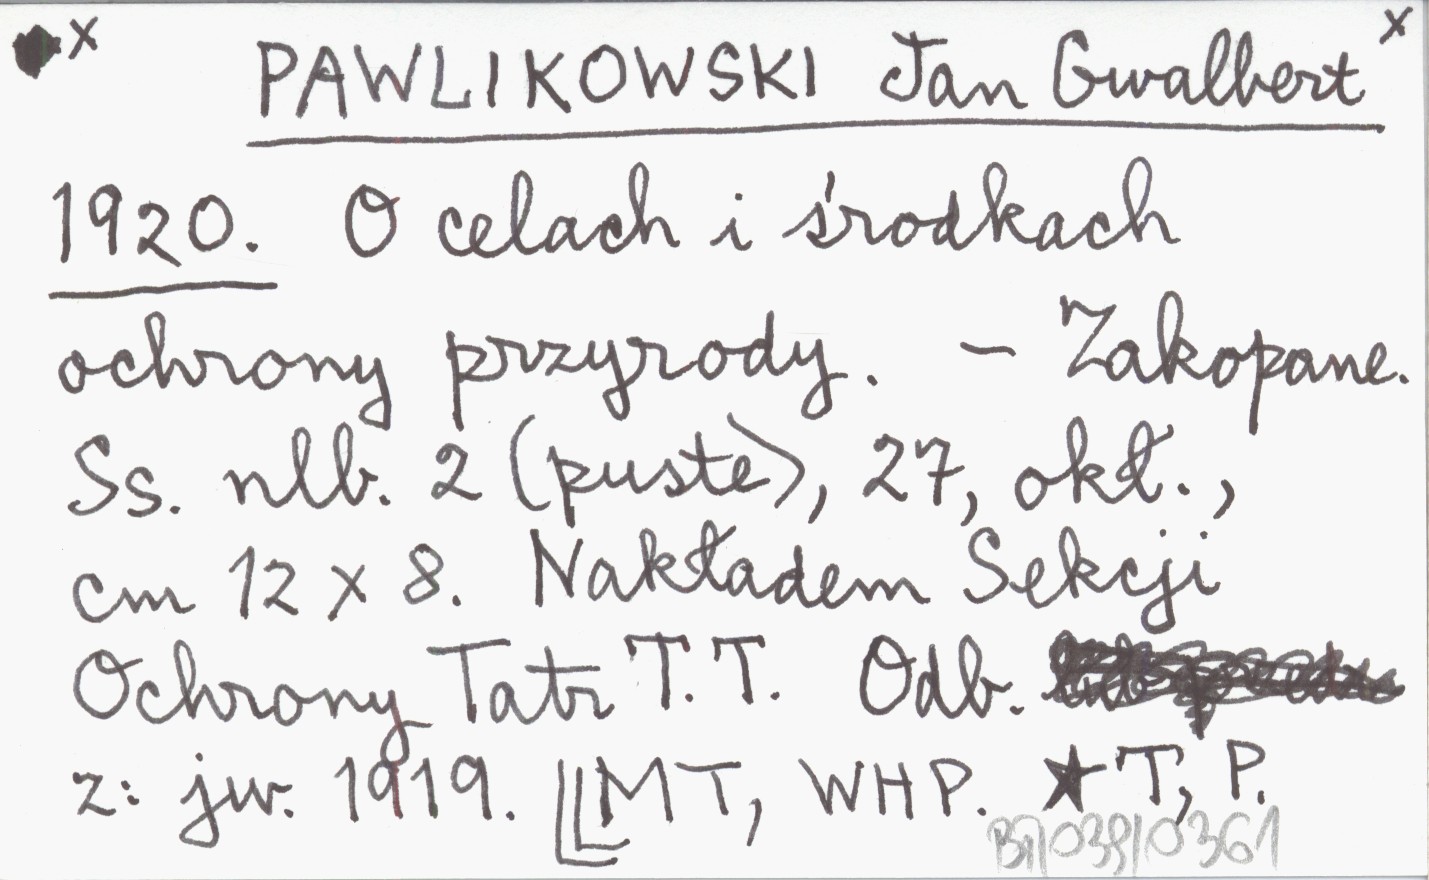 x PAWLIKOWSKI Jan Gwalbert x
1920. O celach i środkach
ochrony przyrody. – Zakopane.
Ss. nlb. 2 (puste), 27, okł.,
cm 12 x 8. Nakładem Sekcji
Ochrony Tatr T.T. Odb.
z: jw. 1919. MT, WHP. ★T, P.
/039/0361